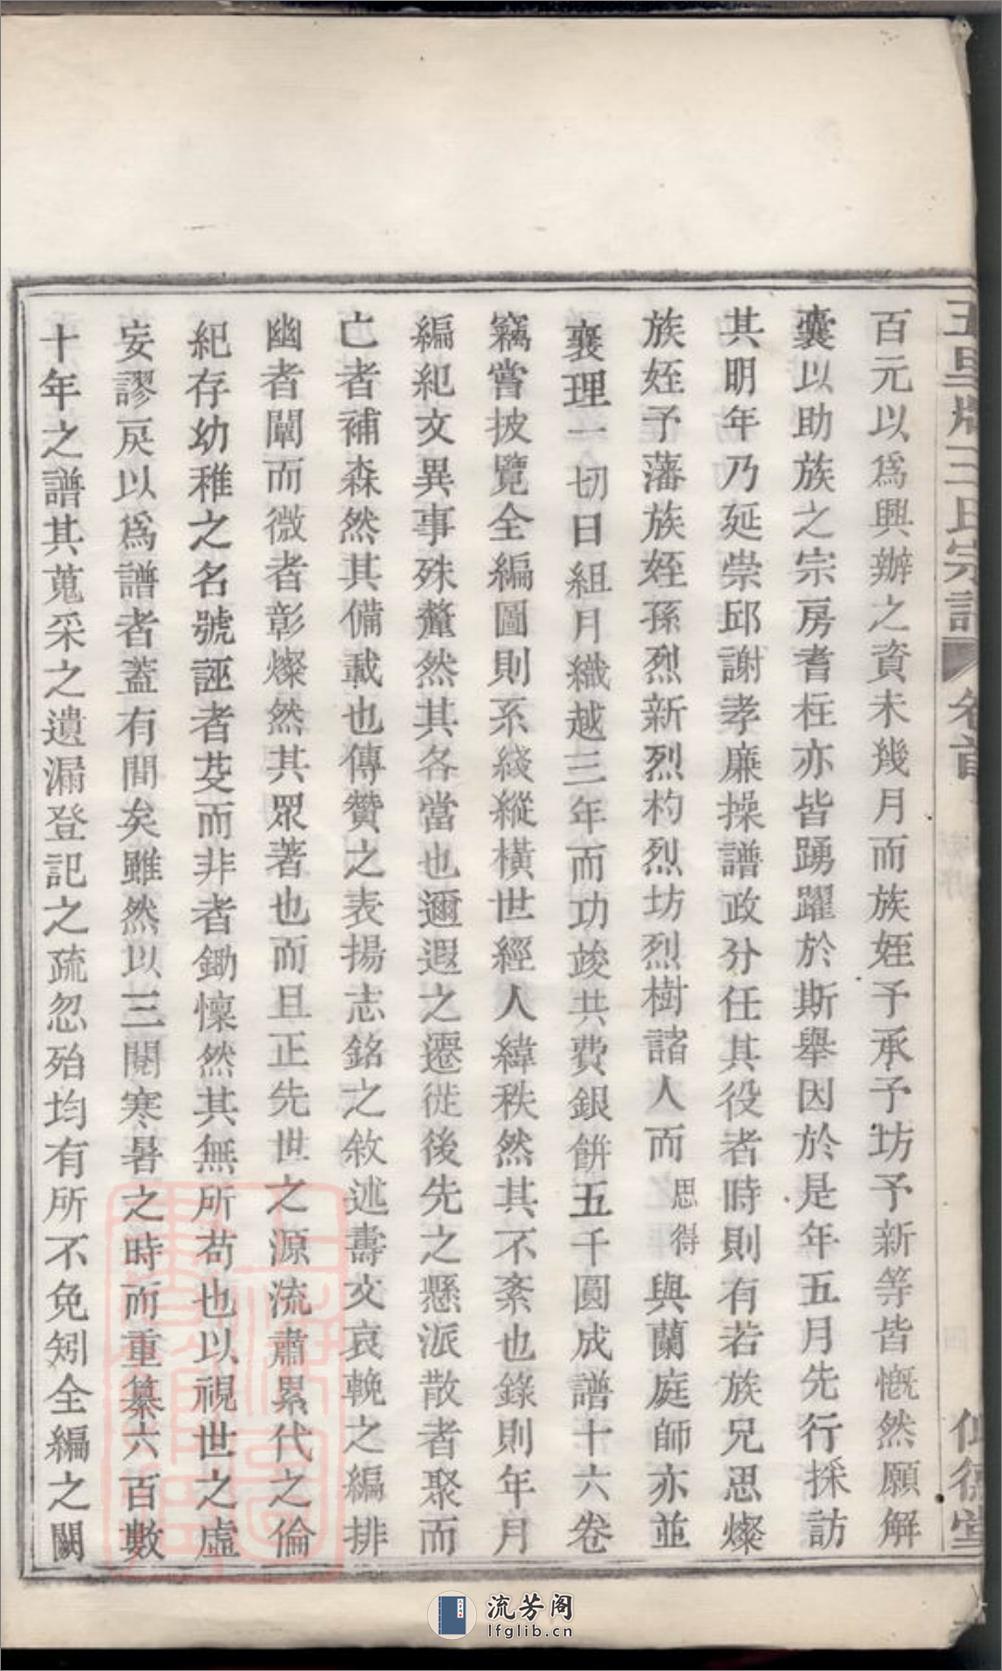 百元以爲興辦之資未幾月而族姪予承予坊予新等皆慨然願解
囊以助族之宗房耆枉亦皆踴躍於斯舉因於是年五月先行採訪
其明年乃延崇邱謝孝廉操譜政分任其役者時則有若族兄思燦
族姪予藩族姪孫烈新烈杓烈坊烈樹諸人而思得與蘭庭師亦並
襄理一切日組月織越三年而功竣共費銀餅五千圓成譜十六卷
竊嘗披覽全編圖則系綫縱橫世經人緯秩然其不紊也錄則年月
編紀文異事殊釐然其各當也邇遐之遷徙後先之懸派散者聚而
亡者補森然其備載也傳贊之表揚志銘之敘述壽文哀輓之編排
幽者闡而微者彰燦然其眾著也而且正先世之源流肅累代之倫
紀存幼稚之名號誣者芟而非者鋤懍然其無所苟也以視世之虛
妄謬戾以爲譜者蓋有間矣雖然以三閱寒暑之時而重纂六百數
十年之譜其蒐采之遺漏登記之疏忽殆均有所不免矧全編之闕
王氏宗譜
卷首
流芳阁
lfglib.cn